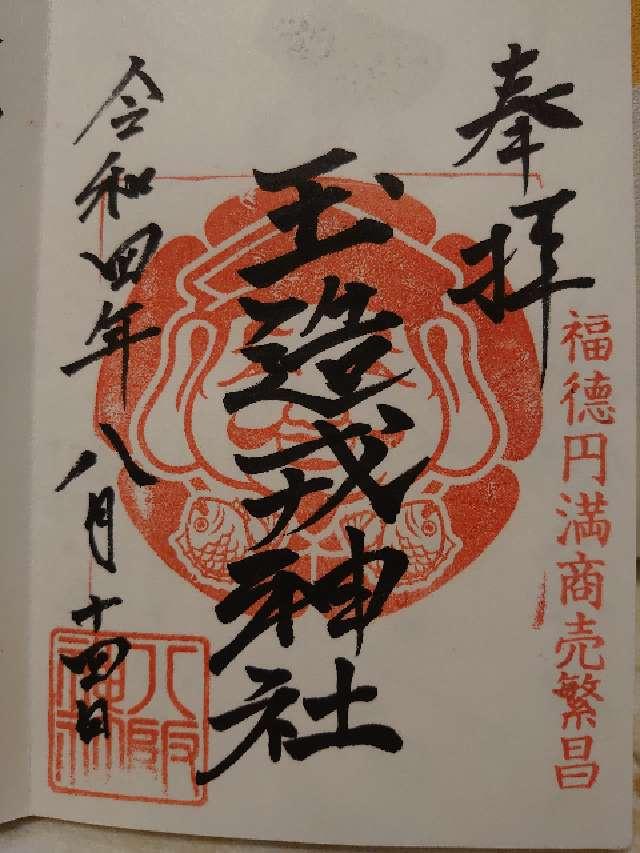 奉拝
福徳円満商売繁昌
玉造戎神社
令和四年八月十四日
八殿神社